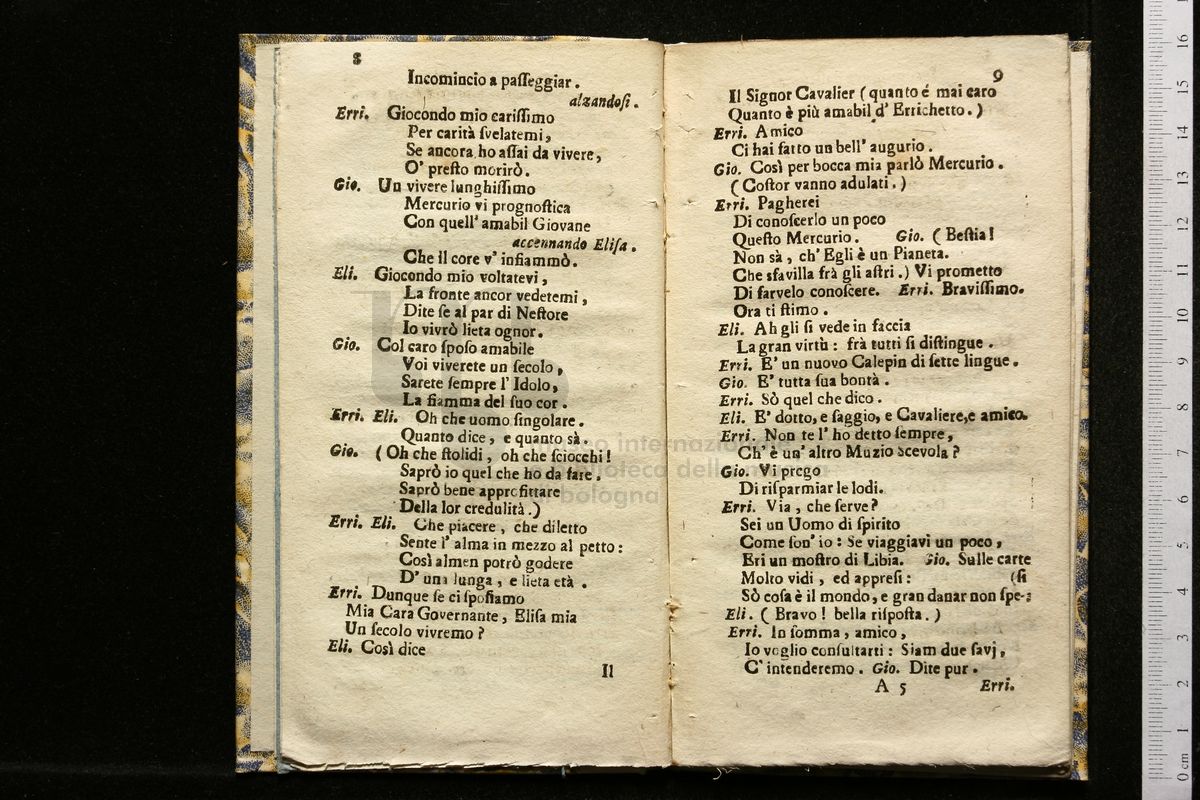 8
Incomincio a paſſeggiar.
alzandoſi.
Erri. Giocondo mio cariſſimo
Per carità ſvelatemi,
Se ancora ho aſſai da vivere,
O' preſto morirò.
Gio. Un vivere lunghiſſimo
Mercurio vi prognoſtica
Con quell' amabil Giovane
accennando Eliſa.
Che il core v' infiammò.
Eli. Giocondo mio voltatevi,
La fronte ancor vedetemi,
Dite ſe al par di Neſtore
Io vivrò lieta ognor.
Gio. Col caro ſpoſo amabile
Voi viverete un ſecolo,
Sarete ſempre l' Idolo,
La fiamma del ſuo cor.
Erri. Eli. Oh che uomo ſingolare.
Quanto dice, e quanto sà.
Gio. (Oh che ſtolidi, oh che ſciocchi!
Saprò io quel che ho da fare,
Saprò bene approfittare
Della lor credulità.)
Erri. Eli. Che piacere, che diletto
Sente l' alma in mezzo al petto:
Così almen potrò godere
D' una lunga, e lieta età.
Erri. Dunque ſe ci ſpoſiamo
Mia Cara Governante, Eliſa mia
Un ſecolo vivremo?
Eli. Così dice
Il
9
Il Signor Cavalier (quanto é mai caro
Quanto è più amabil d' Errichetto.)
Erri. Amico
Ci hai fatto un bell' augurio.
Gio. Così per bocca mia parlò Mercurio.
(Coſtor vanno adulati.)
Erri. Pagherei
Di conoſcerlo un poco
Queſto Mercurio. Gio. (Beſtia!
Non sà, ch' Egli è un Pianeta.
Che sfavilla frà gli aſtri.) Vi prometto
Di farvelo conoſcere. Erri. Braviſſimo.
Ora ti ſtimo.
Eli. Ah gli ſi vede in faccia
La gran virtù: frà tutti ſi diſtingue.
Erri. E' un nuovo Calepin di ſette lingue.
Gio. E' tutta ſua bontà.
Erri. Sò quel che dico.
Eli. E' dotto, e ſaggio, e Cavaliere, e amico.
Erri. Non te l' ho detto ſempre,
Ch' è un' altro Muzio Scevola?
Gio. Vi prego
Di riſparmiar le lodi.
Erri. Via, che ſerve?
Sei un Uomo di ſpirito
Come ſon' io: Se viaggiavi un poco,
Eri un moſtro di Libia. Gio. Sulle carte
Molto vidi, ed appreſi: (ſi
Sò coſa è il mondo, e gran danar non ſpe-
Eli. (Bravo! bella riſpoſta.)
Erri. In ſomma, amico,
Io voglio conſultarti: Siam due ſavj,
C' intenderemo. Gio. Dite pur.
A 5 Erri.
museo internazionale
e biblioteca della musica
di bologna
0 cm 1 2 3 4 5 6 7 8 9 10 11 12 13 14 15 16